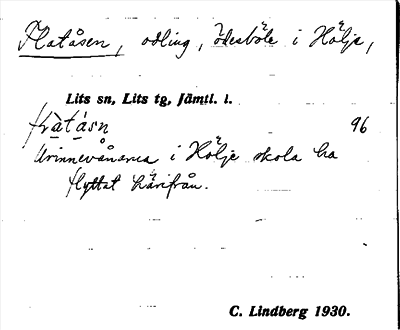 Flatåsen, odling, ödesböle i Hölje,
Lits sn, Lits tg, Jämtl. l.
96
i Hölje skola ha
flyttat härifrån.
C. Lindberg 1930.